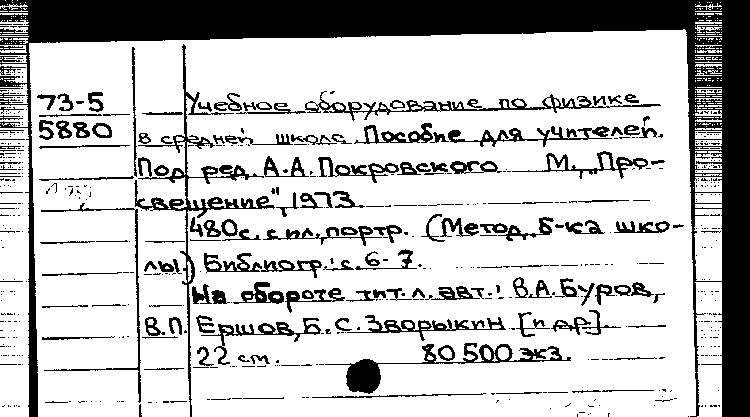 73-5
5880
Учебное оборудование по физике
в средней школе. Пособие для учителей.
Под ред. А.А. Покровского М., „Про-
свещение", 1973.
480с. с ил., портр. (Метод. б-ка шко-
лы.) Библиогр.: с. 6-7.
На обороте тит. л. авт.: В.А. Буров,
В.П. Ершов, Б.С. Зворыкин [и др].
22 см. 80 500 экз.